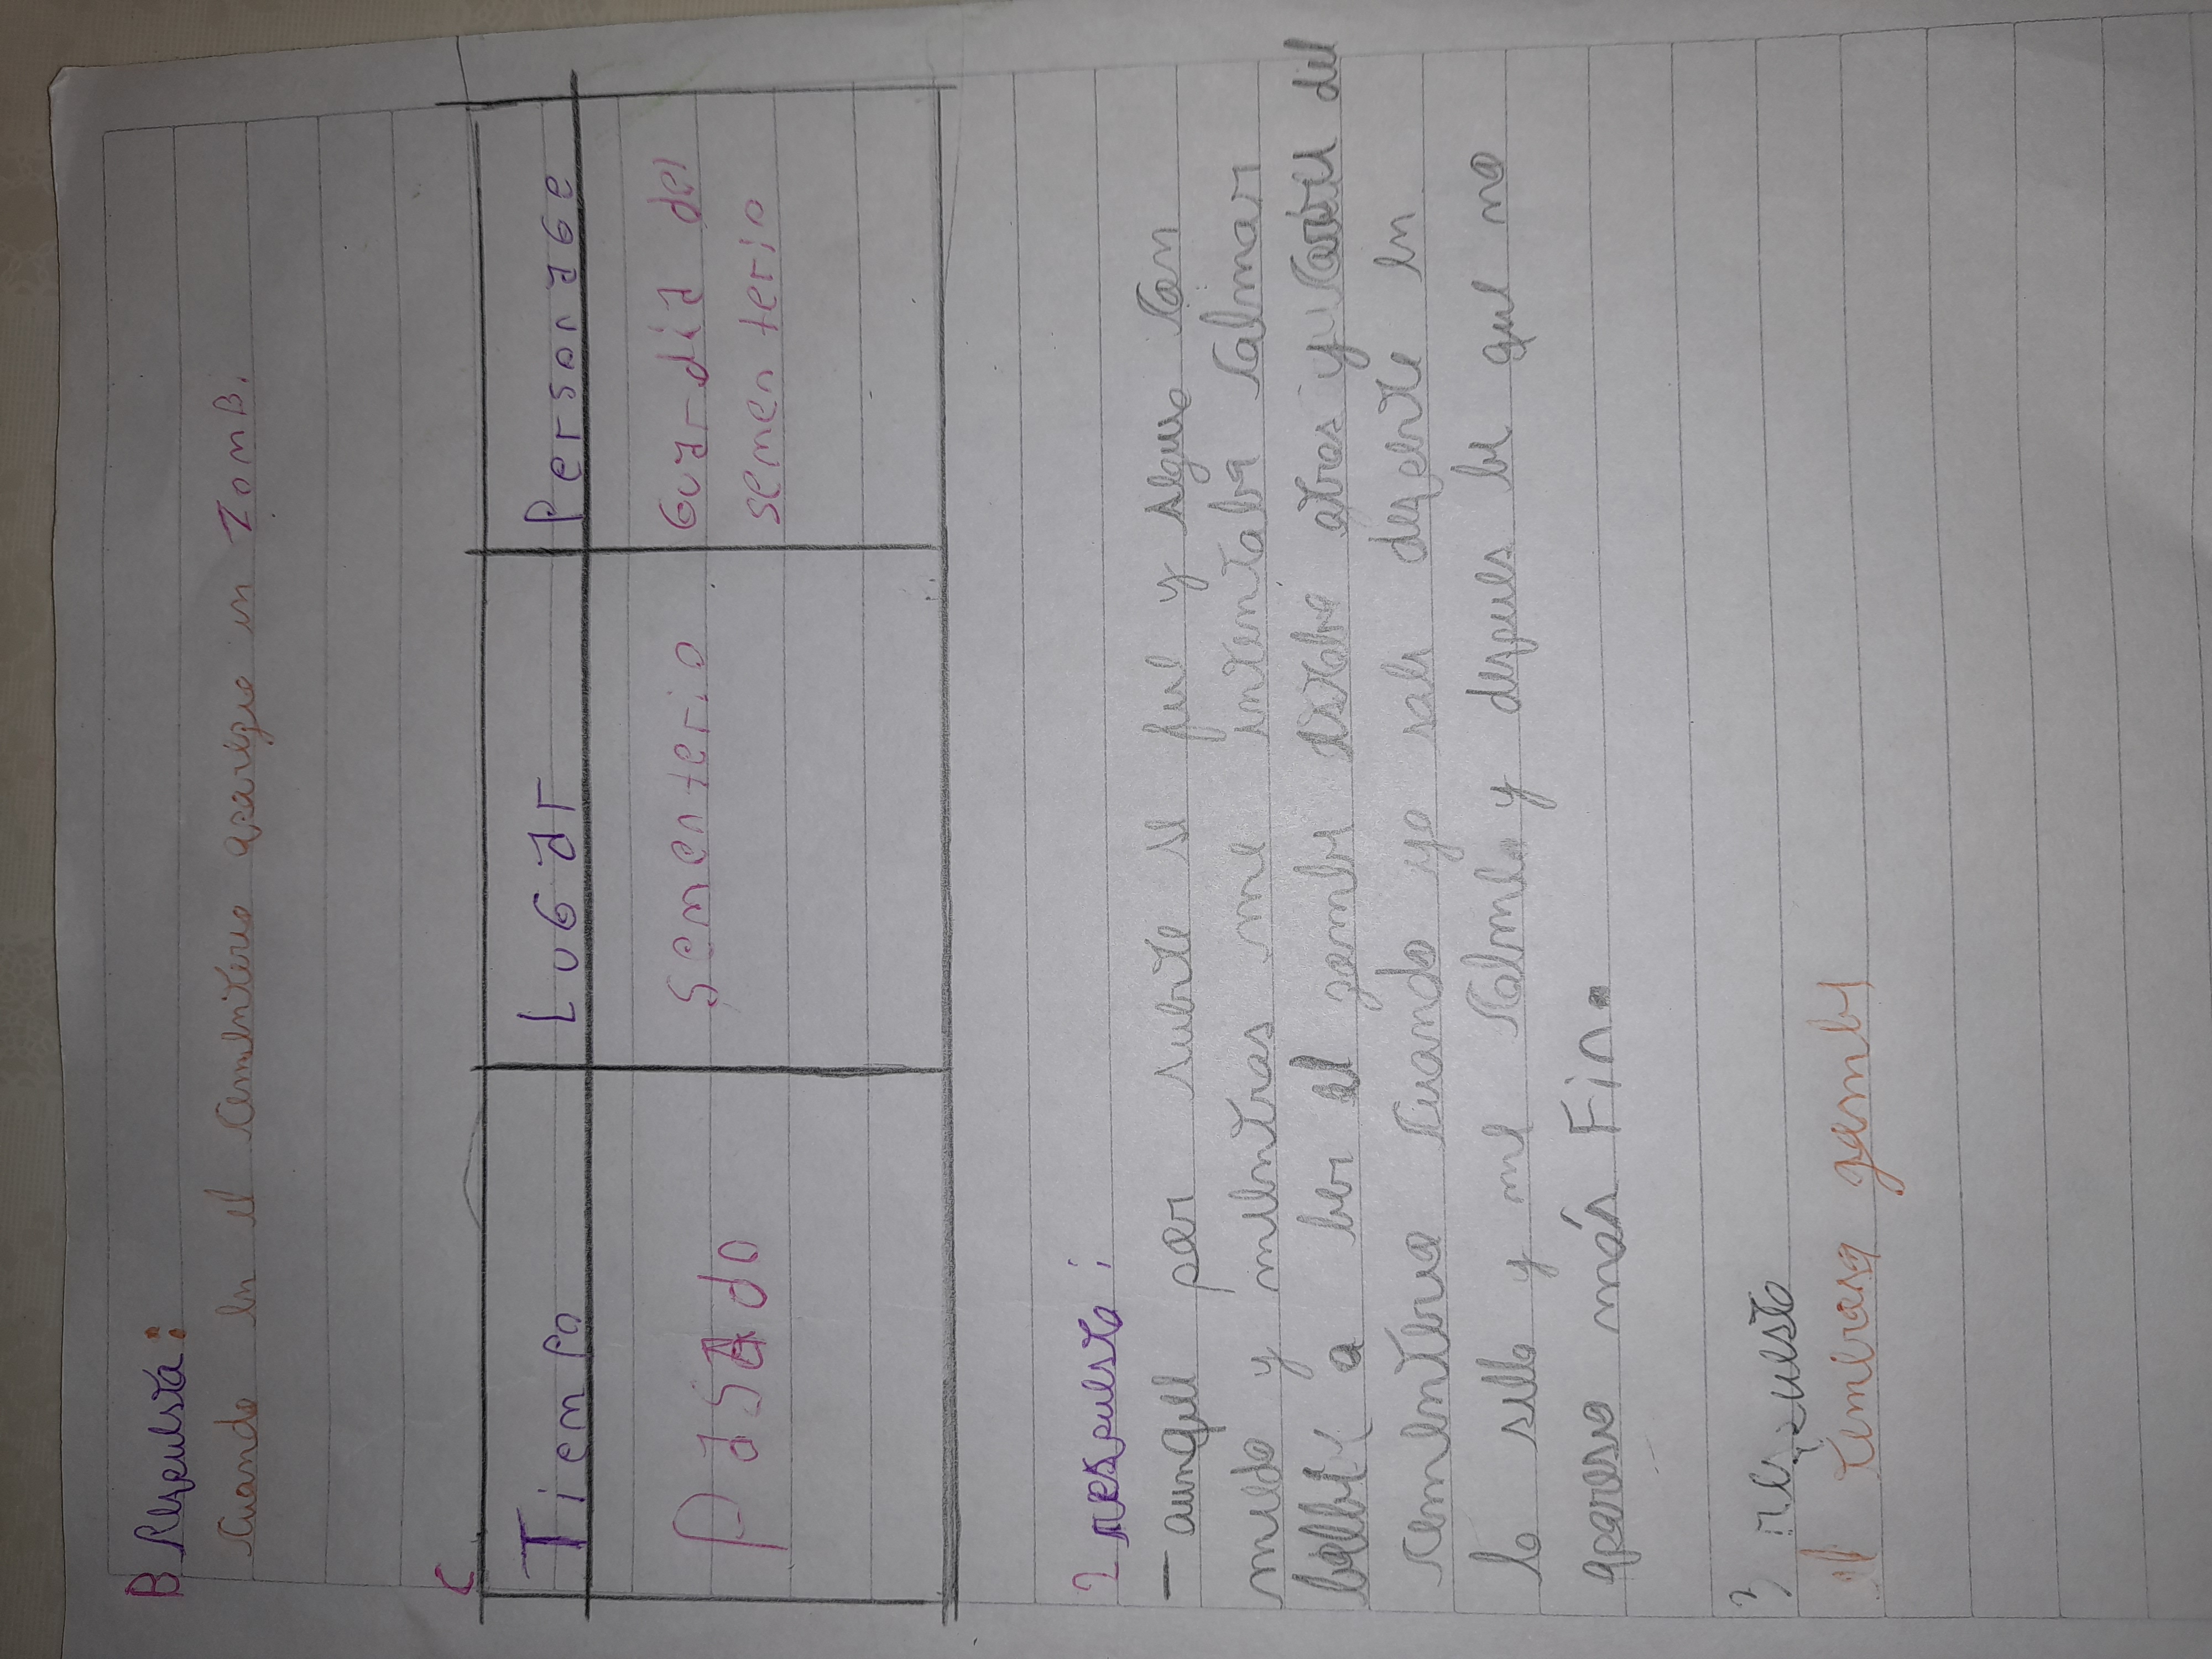 B Respuesta:
Cuando en el cementerio aparizio un zomB.
C
Tiempo Lugar Personage
Pasado sementerio Guardia del
sementerio
2 respuesta:
- aunque por suerte se fue y sigue con
miedo y mientras me intentaba calmar
bolbi a ber el zombi estabe atras y corri del
cementerio cuando yo sali desperte en
la silla y me calme y despues bi que no
apareso más Fin.
3 respuesta
el temeroso zombi